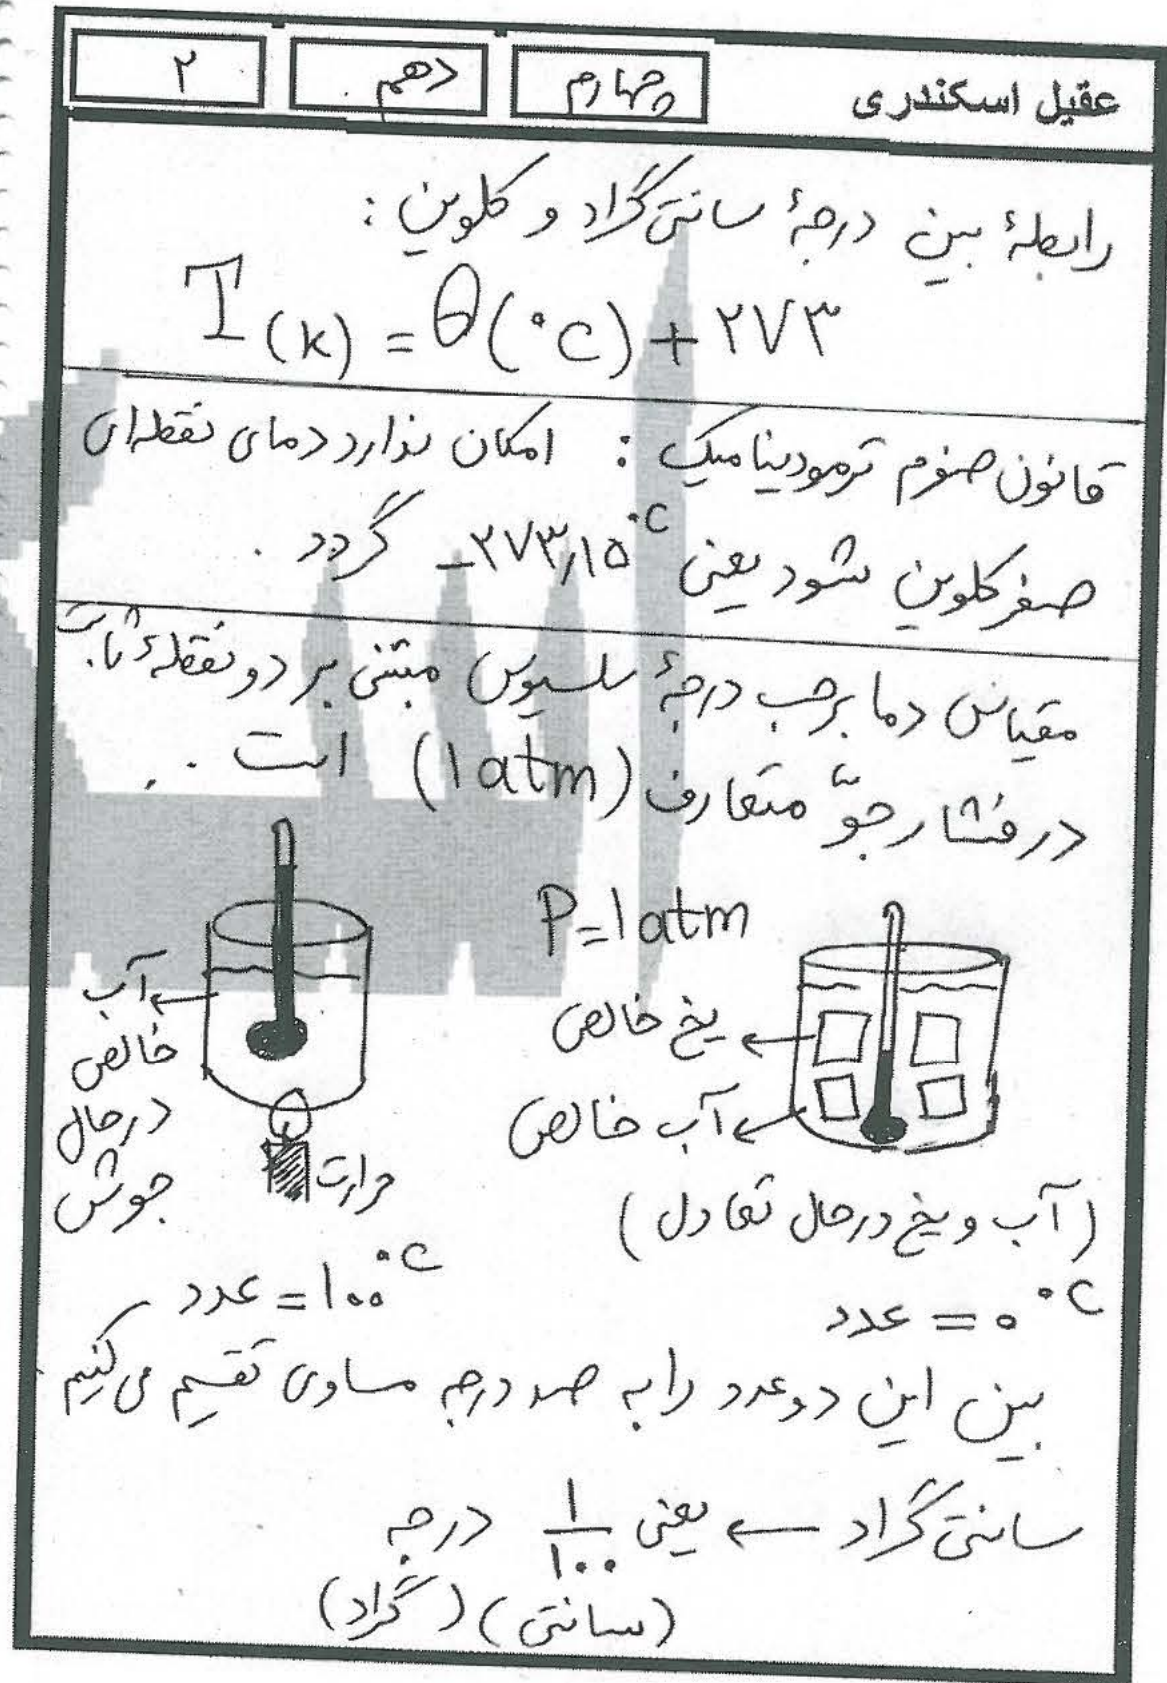 عقیل اسکندری
چهارم
دهم
۲
رابطهٔ بین درجهٔ سانتی‌گراد و کلوین :
T (K) = θ(°C) + ۲۷۳
قانون صفرم ترمودینامیک : امکان ندارد دمای نقطه‌ای
صفر کلوین شود یعنی -۲۷۳٫۱۵ °C گردد .
مقیاس دما برحسب درجهٔ سلسیوس مبتنی بر دو نقطهٔ ثابت
در فشار جوّ متعارف (۱ atm) است .
P=۱ atm
یخ خالص
آب خالص
(آب و یخ درحال تعادل)
عدد = ۰ °C
آب
خالص
درحال
جوش
حرارت
عدد = ۱۰۰ °C
بین این دو عدد را به صد درجه مساوی تقسیم می‌کنیم .
سانتی‌گراد ← یعنی ۱/۱۰۰ درجه
(سانتی) (گراد)